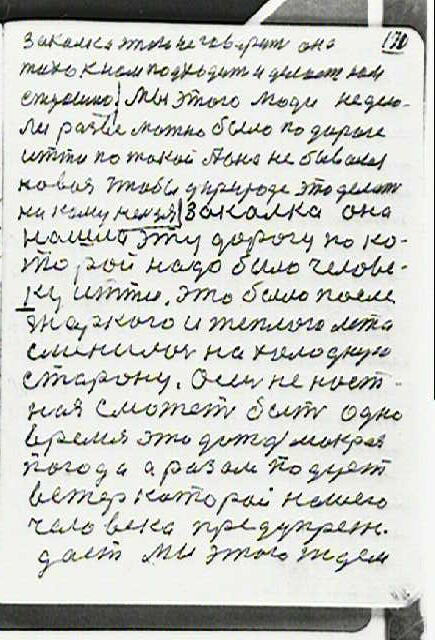 170
Закалка этого не говорит она
тихо к нам подходит и делает нам
страшно! Мы этого люди не дума-
ли разве можно было по дороге
итти по такой Она не бывалая
новая чтобы у природе это делать
никому нельзя! Закалка она
нашла эту дорогу по ко-
торой надо было челове-
ку итти. Это было после
жаркого и теплого лета
сменился на холодную
старону. Осен не
ная сможет быть одно
время это дождь мокрая
погода а разом подует
ветер которой нашего
человека предупреж-
дает мы этого ждем